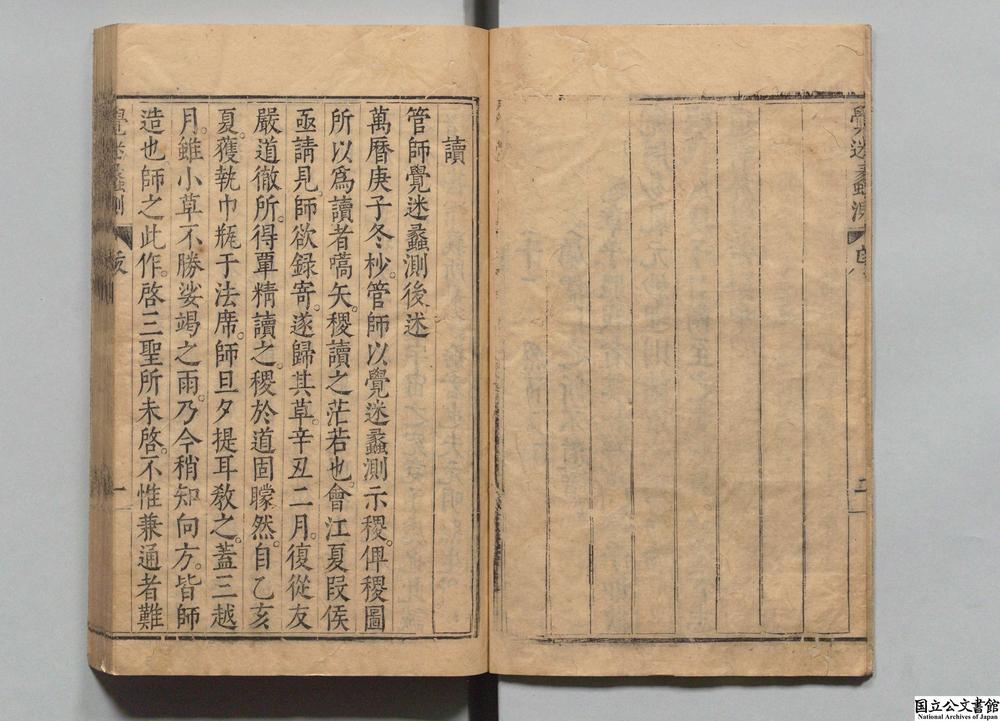 覺迷蠡測
二
讀
管師覺迷蠡測後述
萬曆庚子冬杪。管師以覺迷蠡測示稷。俾稷圖
所以爲讀者嚆矢。稷讀之茫若也。會江夏段侯
亟請見。師欲録寄。遂歸其草。辛丑二月。復從友
嚴道徹所。得單精讀之。稷於道固矇然。自乙亥
夏。獲執巾瓶于法席。師旦夕提耳敎之。蓋三越
月。雖小草不勝娑竭之雨。乃今稍知向方。皆師
造也師之此作。啓三聖所未啓。不惟兼通者難
覺迷蠡測
一
国立公文書館
National Archives of Japan